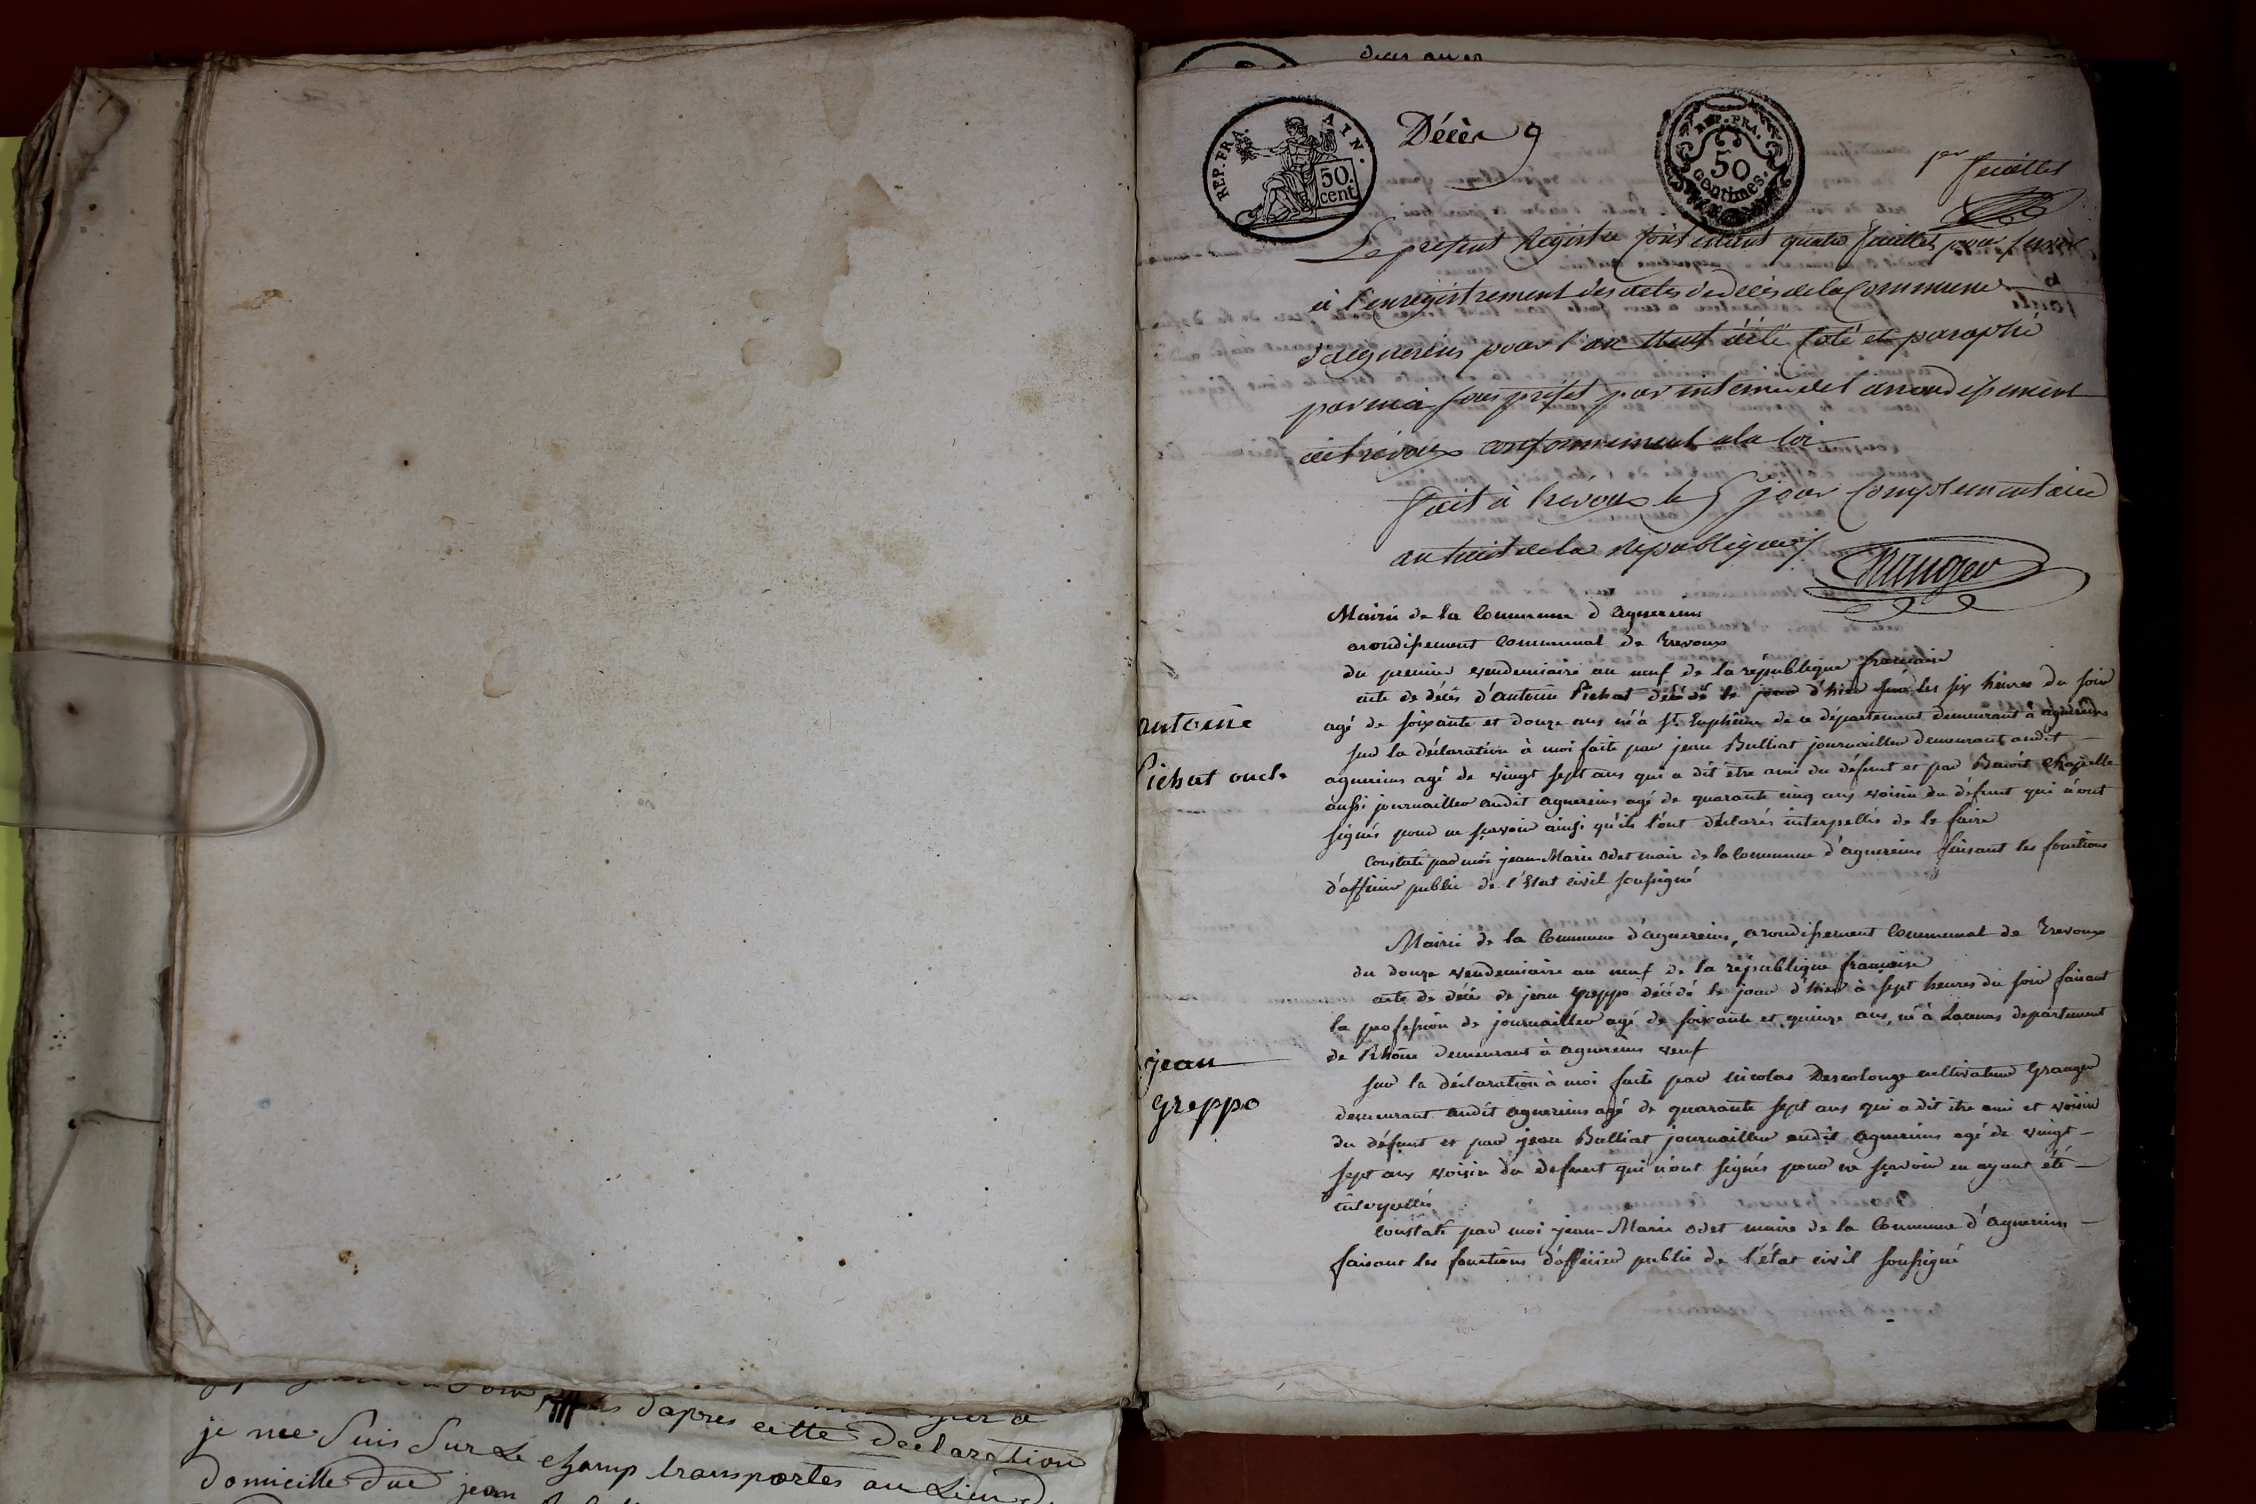 Décès 9
REP. FRA.
AIN.
50.
cent
REP. FRA.
50
centimes.
1er feuillet
Le present Registre contenant quatre feuillets pour servir
à l'enregistrement des actes de decés de la Commune
d'agnereins pour l'an neuf a été Coté et paraphé
par moi sous prefet par interim de l'arrondissement
de trévoux conformement a la loi
fait à trévoux le 5 jour Complementaire
an huit de la Republique
Mairie de la Commune d'agnereins
arondissement Communal de Trevoux
du premier vendemiaire an neuf de la république francaise
acte de décès d'antoine Pichat décédé le jour d'hier sur les six heures du soir
antoine
agé de soixante et douze ans né à St. Euphême de ce département demeurant à agnereins
sur la déclaration à moi faite par jean Bulliat journaillier demeurant audit
Pichat
agnereins agé de vingt sept ans qui a dit être ami du défunt et par Benoit Chapelle
aussi journaillier audit agnereins agé de quarante cinq ans voisin du défunt qui n'ont
signés pour ne sçavoir ainsi qu'ils l'ont déclarés interpellés de le faire
Constaté par moi jean-Marie Odet maire de la Commune d'agnereins faisant les fonctions
d'officier public de l'Etat civil soussigné
Mairie de la Commune d'agnereins, arondissement Communal de Trevoux
du douze vendemiaire an neuf de la république francaise
acte de décès de jean greppo décédé le jour d'hier à sept heures du soir faisant
la profession de journaillier agé de soixante et quinze ans, né à Lacenas departement
jean
de Rhône demeurant à agnereins veuf
sur la déclaration à moi faite par nicolas Descolonge cultivateur Granger
greppo
demeurant audit agnereins agé de quarante sept ans qui a dit être ami et voisin
du défunt et par jean Bulliat journaillier audit agnereins agé de vingt
sept ans voisin du defunt qui n'ont signés pour ne sçavoir en ayant été
interpellés
Constaté par moi jean-Marie Odet maire de la Commune d'agnereins
faisant les fonctions d'officier public de l'état civil soussigné
d'apres cette declaration
je me Suis Sur Le champ transportés au Lieu
domicille du jean